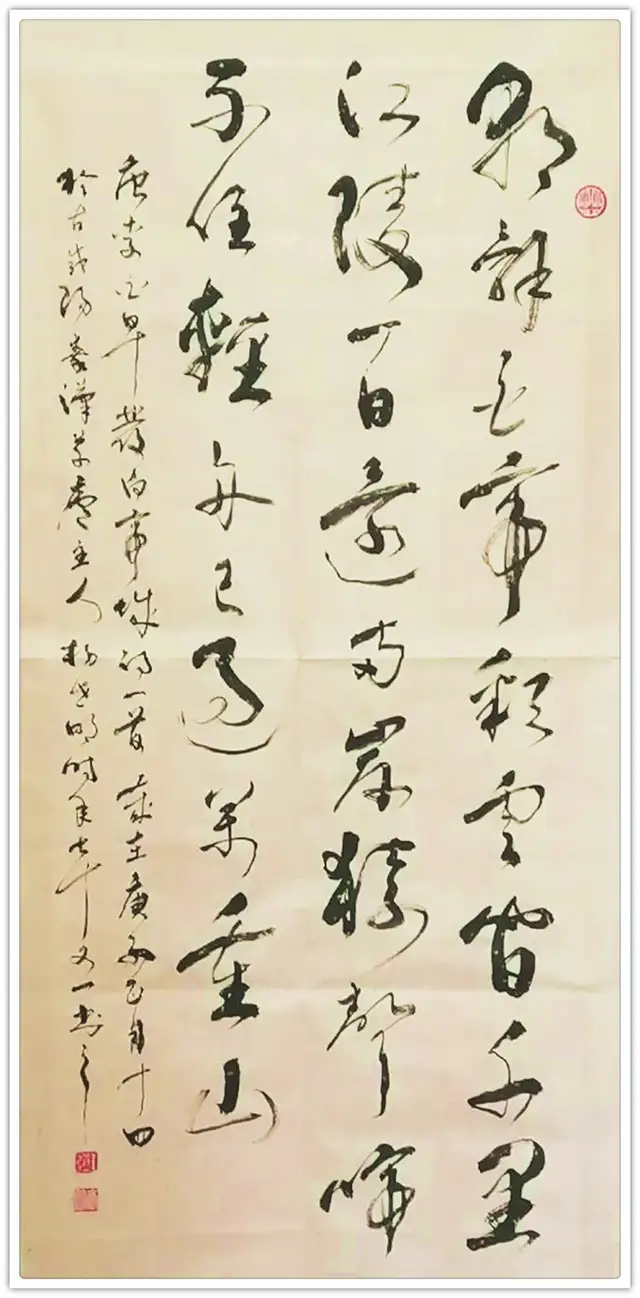 朝辭白帝彩雲間千里
江陵一日還兩岸猿聲啼
不住輕舟已過萬重山
唐李白早發白帝城詩一首歲在庚子五月十四
於古咸陽秦漢草廬主人時年七十又一書之